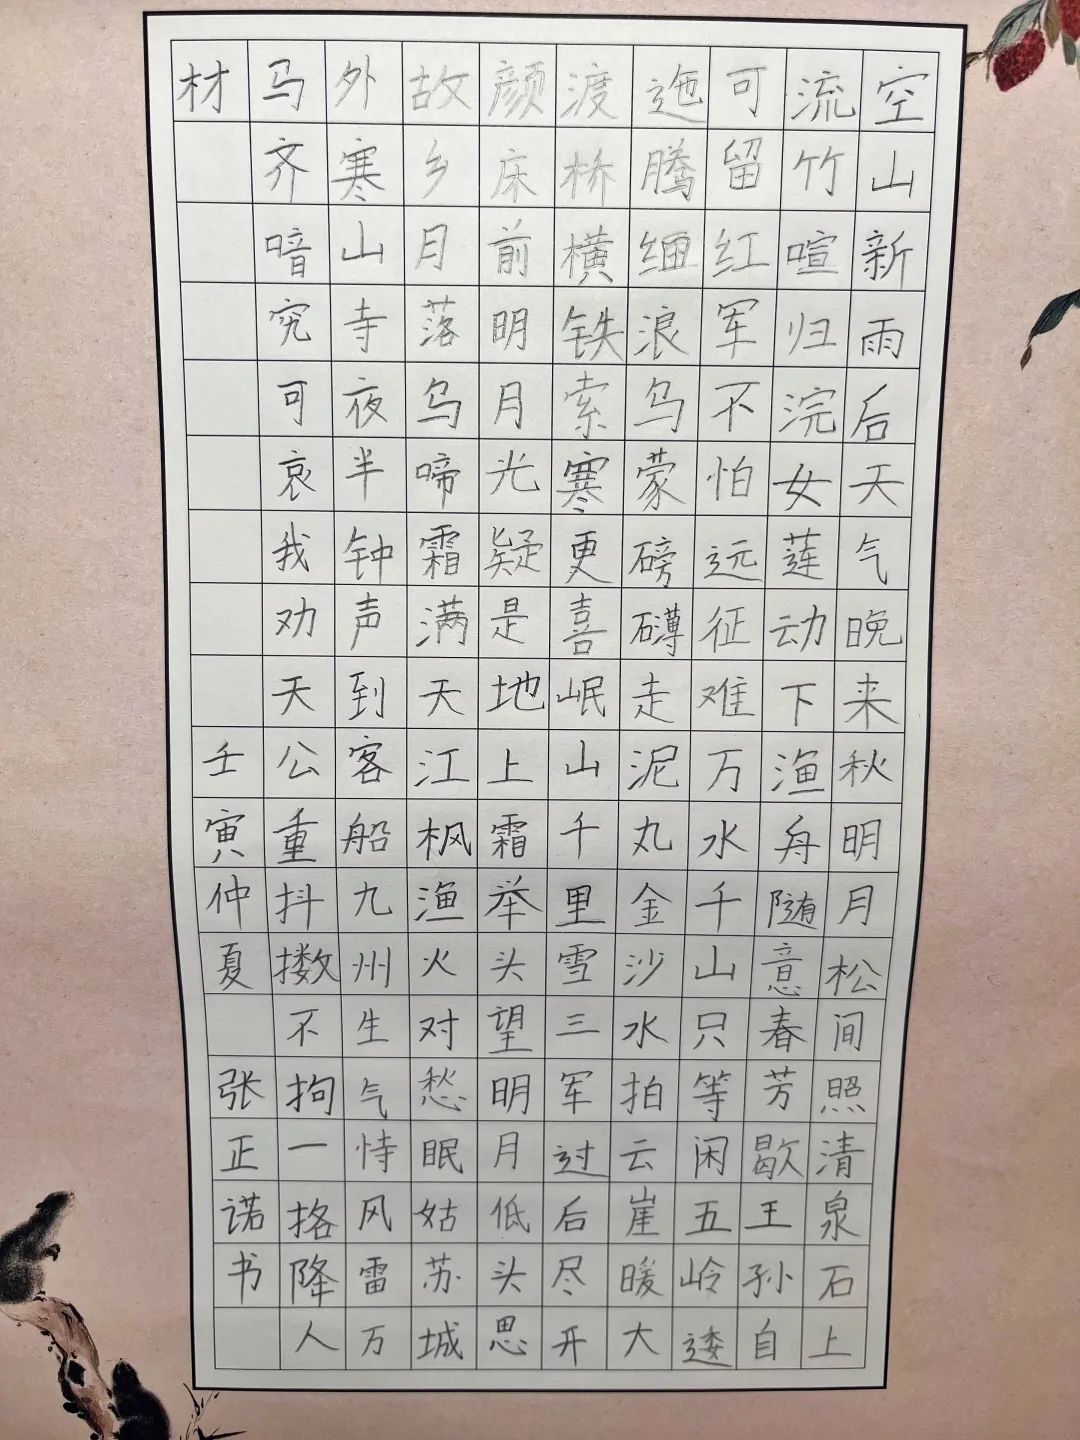 空山新雨后天气晚来秋明月松间照清泉石上
流竹喧归浣女莲动下渔舟随意春芳歇王孙自
可留红军不怕远征难万水千山只等闲五岭逶
迤腾细浪乌蒙磅礴走泥丸金沙水拍云崖暖大
渡桥横铁索寒更喜岷山千里雪三军过后尽开
颜床前明月光疑是地上霜举头望明月低头思
故乡月落乌啼霜满天江枫渔火对愁眠姑苏城
外寒山寺夜半钟声到客船九州生气恃风雷万
马齐喑究可哀我劝天公重抖擞不拘一格降人
材
壬寅仲夏 张正诺书